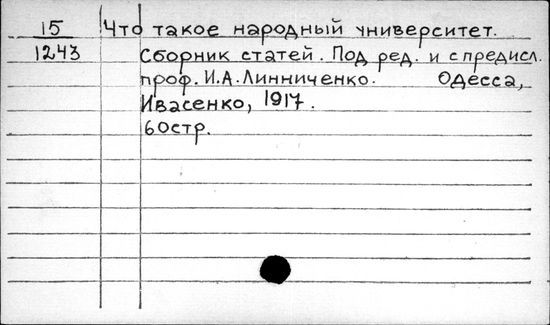 15 Что такое народный университет.
1243 Сборник статей. Под ред. и с предисл.
проф. И.А.Линниченко. Одесса,
Ивасенко, 1917.
60стр.